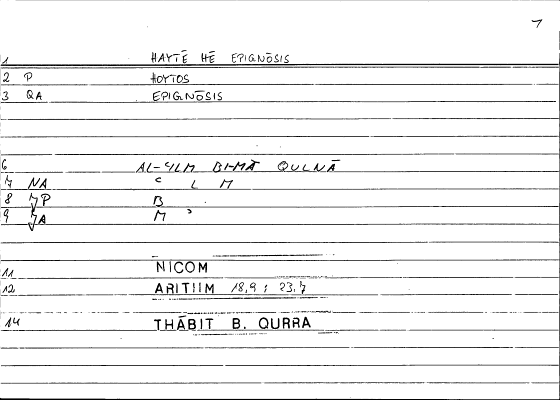 7
1 HAYTĒ HĒ EPIGNŌSIS
2 P HOYTOS
3 QA EPIGNŌSIS
6 AL-ʿILM BI-MĀ QULNĀ
7 NA ʿ L M
8 JP B
9 JA M ʾ
11 NICOM
12 ARITHM 18,9 ; 23,7
14 THĀBIT B. QURRA